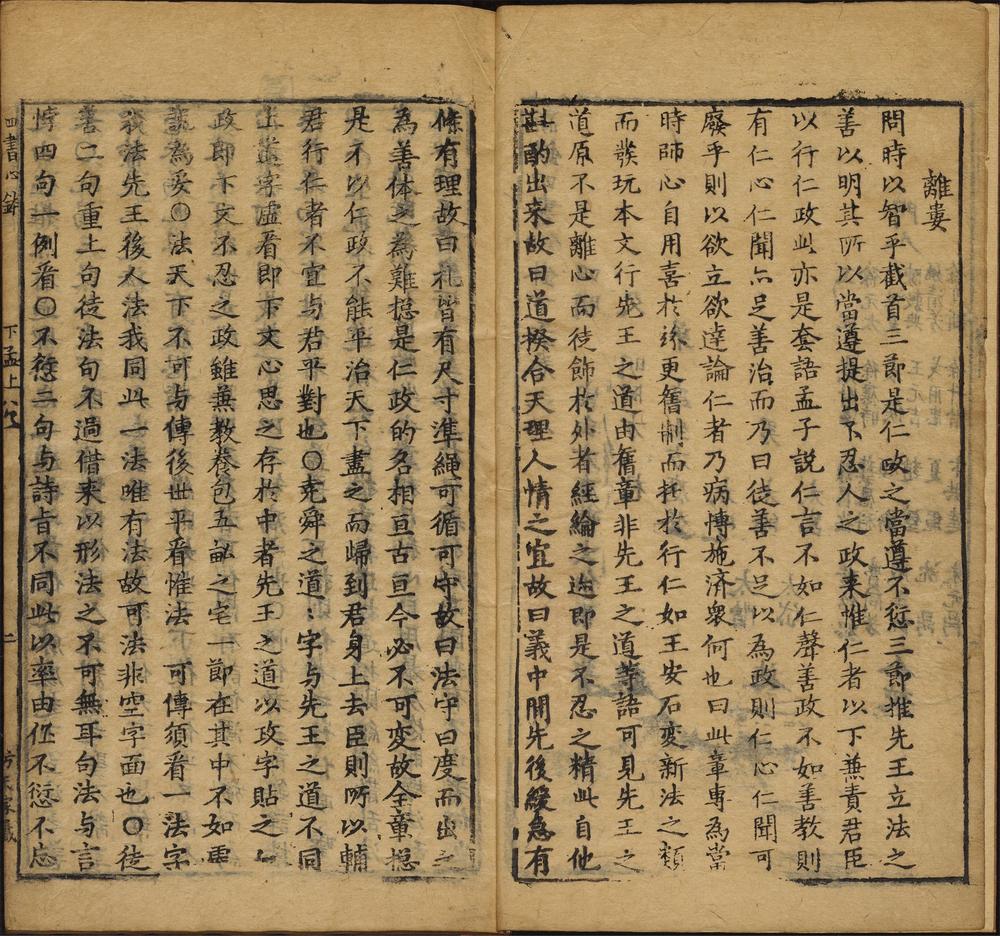 離婁
問時以智乎截首三節是仁政之當遵不愆三節推先王立法之
善以明其所以當遵提出不忍人之政来惟仁者以下兼責君臣
以行仁政此亦是套語孟子説仁言不如仁聲善政不如善教則
有仁心仁聞亦足善治而乃曰徒善不足以為政則仁心仁聞可
廢乎則以欲立欲達論仁者乃病博施済衆何也曰此章專為當
時師心自用喜於紛更舊制而托於行仁如王安石变新法之類
而發玩本文行先王之道由舊章非先王之道等語可見先王之
道原不是離心而徒飾於外者經綸之迹即是不忍之精此自他
斟酌出来故曰道揆合天理人情之宜故曰義中間先後緩急有
條有理故曰礼皆有尺寸準繩可循可守故曰法守曰度而出之
為善体之為難揔是仁政的名相亘古亘今必不可变故全章揔
是不以仁政不能平治天下盡之而歸到君身上去臣則所以輔
君行仁者不宜与君平對也〇尭舜之道:字与先王之道不同
上道字虛看即下文心思之存於中者先王之道以政字貼之
政即下文不忍之政雖兼教養包五畝之宅一節在其中不如重
説為妥〇法天下不可与傳後世平看惟法下可傳須看一法字
我法先王後人法我同此一法唯有法故可法非空字面也〇徒
善二句重上句徒法句不過借来以形法之不可無耳句法与言
悖四句一例看〇不愆二句与詩旨不同此以率由作不愆不忘
四書心錄
下孟上
二